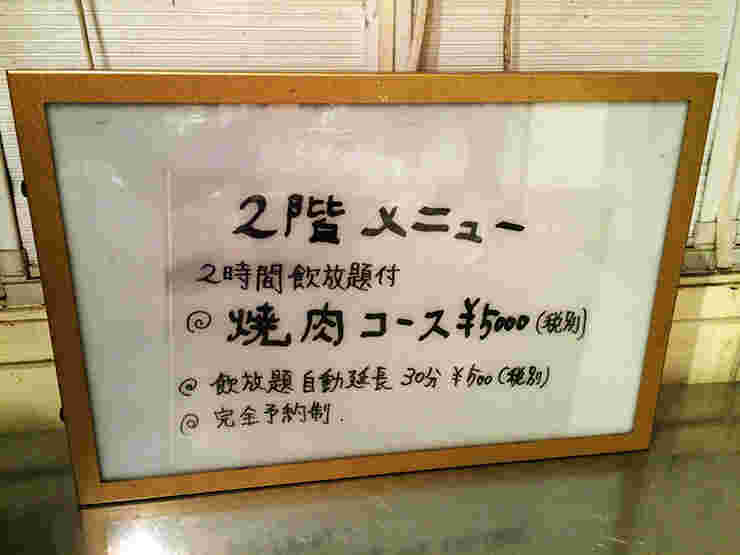 2階 メニュー
2時間飲放題付
@ 焼肉コース ¥5000 (税別)
@ 飲放題 自動延長 30分 ¥500 (税別)
@ 完全予約制.